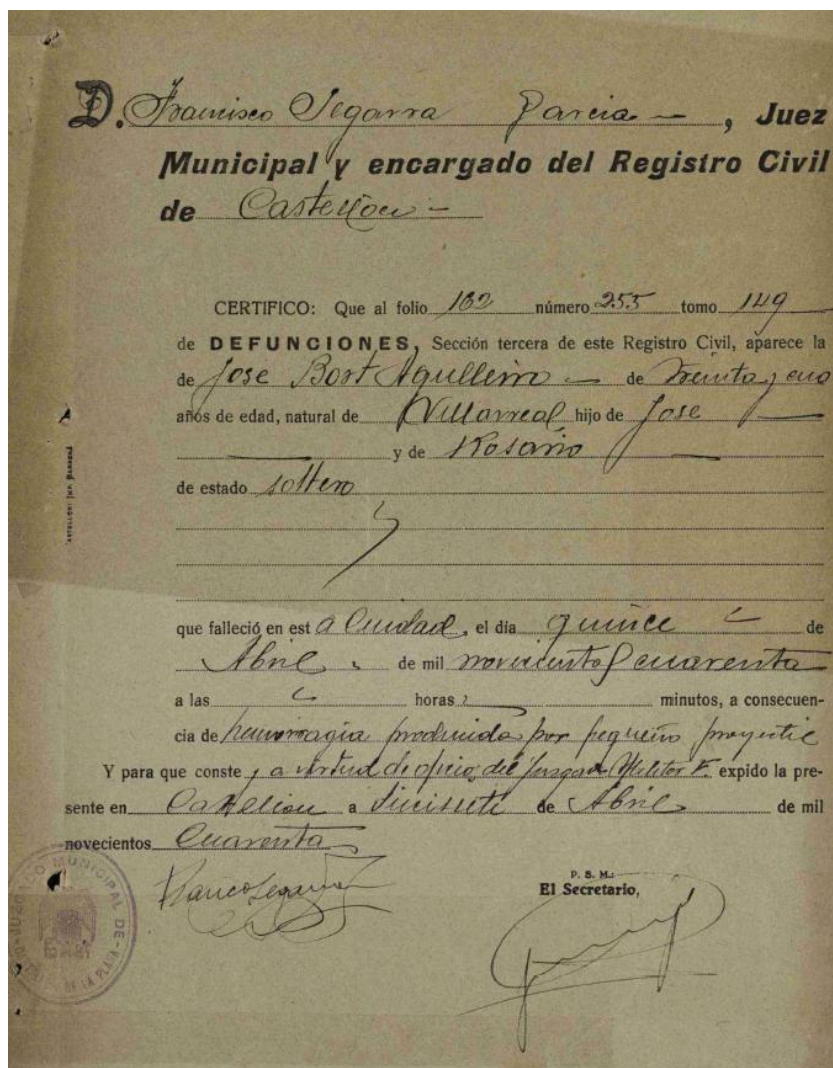 D. Francisco Segarra Garcia, Juez
Municipal y encargado del Registro Civil
de Castellon
CERTIFICO: Que al folio 182 número 255 tomo 149
de DEFUNCIONES, Sección tercera de este Registro Civil, aparece la
de Jose Bort Agulleiro de treinta y
años de edad, natural de Villarreal hijo de Jose
y de Rosario
de estado soltero
que falleció en esta Ciudad, el día quince de
Abril de mil novecientos cuarenta
a las horas minutos, a consecuen-
cia de hemorragia producida por pequeño proyectil
Y para que conste y a virtud de oficio del Juzgado Militar F. expido la pre-
sente en Castellon a diecisiete de Abril de mil
novecientos Cuarenta
Franco Segarra
P. S. M.:
El Secretario,
JUZGADO MUNICIPAL DE
DE LA PLANA
CASTELLON: IMP. BARBERÁ